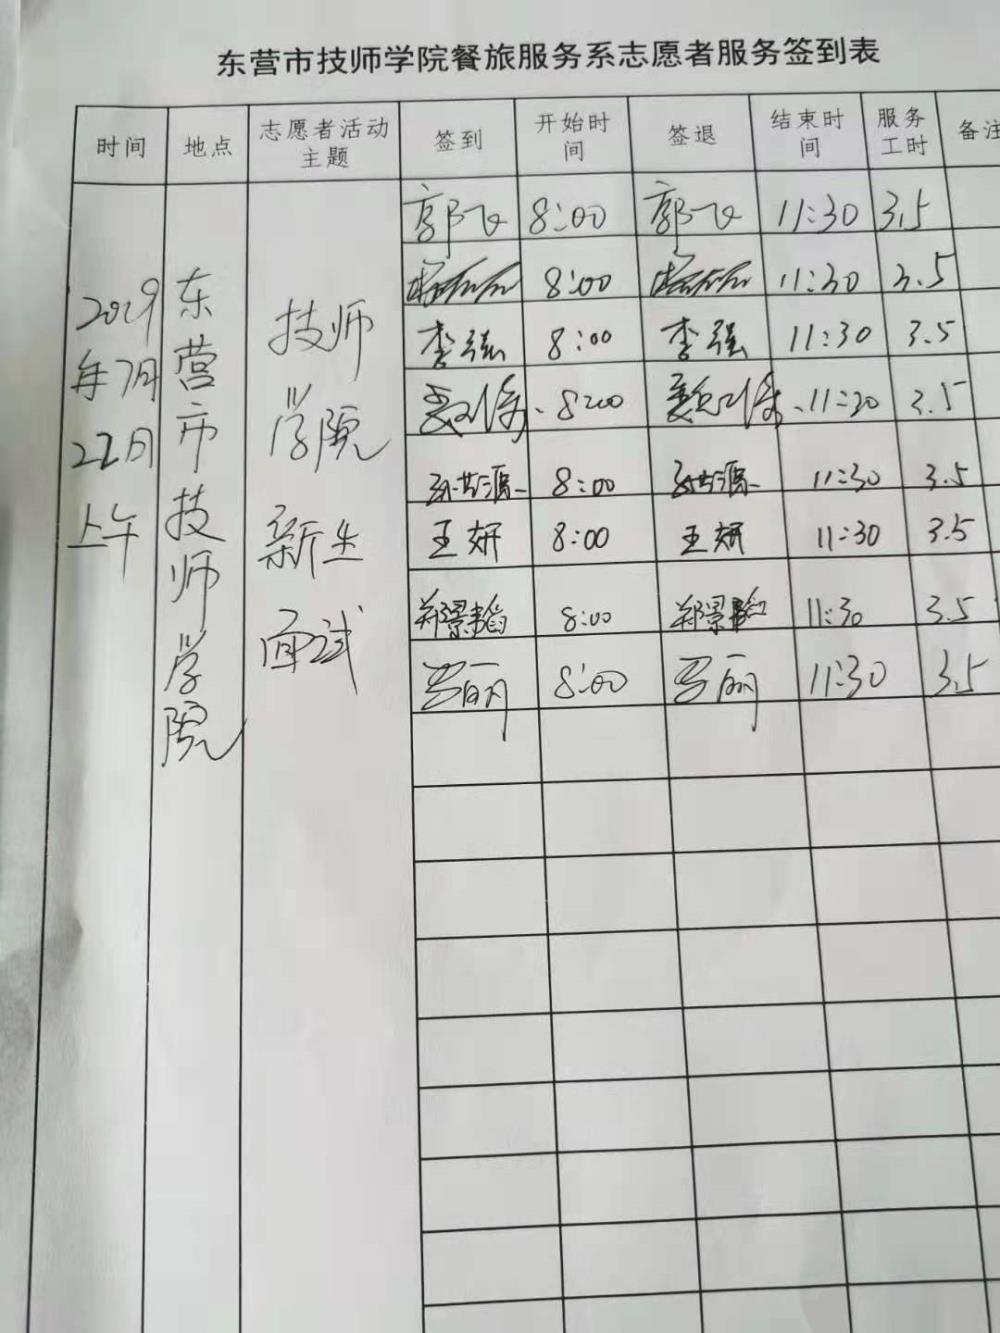 东营市技师学院餐旅服务系志愿者服务签到表
时间 地点 志愿者活动主题 签到 开始时间 签退 结束时间 服务工时 备注
2019年7月22日上午 东营市技师学院 技师学院新生面试
郭飞 8:00 郭飞 11:30 3.5
8:00 11:30 3.5
李强 8:00 李强 11:30 3.5
8:00 11:30 3.5
8:00 11:30 3.5
王妍 8:00 王妍 11:30 3.5
郑景韬 8:00 郑景韬 11:30 3.5
罗丽 8:00 罗丽 11:30 3.5